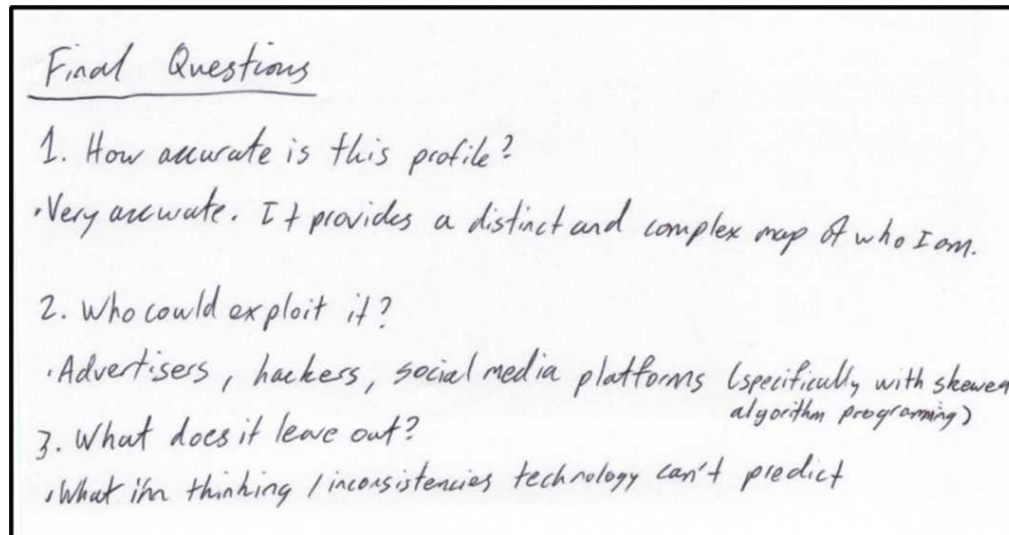 Final Questions
1. How accurate is this profile?
•Very accurate. It provides a distinct and complex map of who I am.
2. Who could exploit it?
•Advertisers, hackers, social media platforms (specifically with skewed
algorithm programing)
3. What does it leave out?
•What i'm thinking / inconsistencies technology can't predict